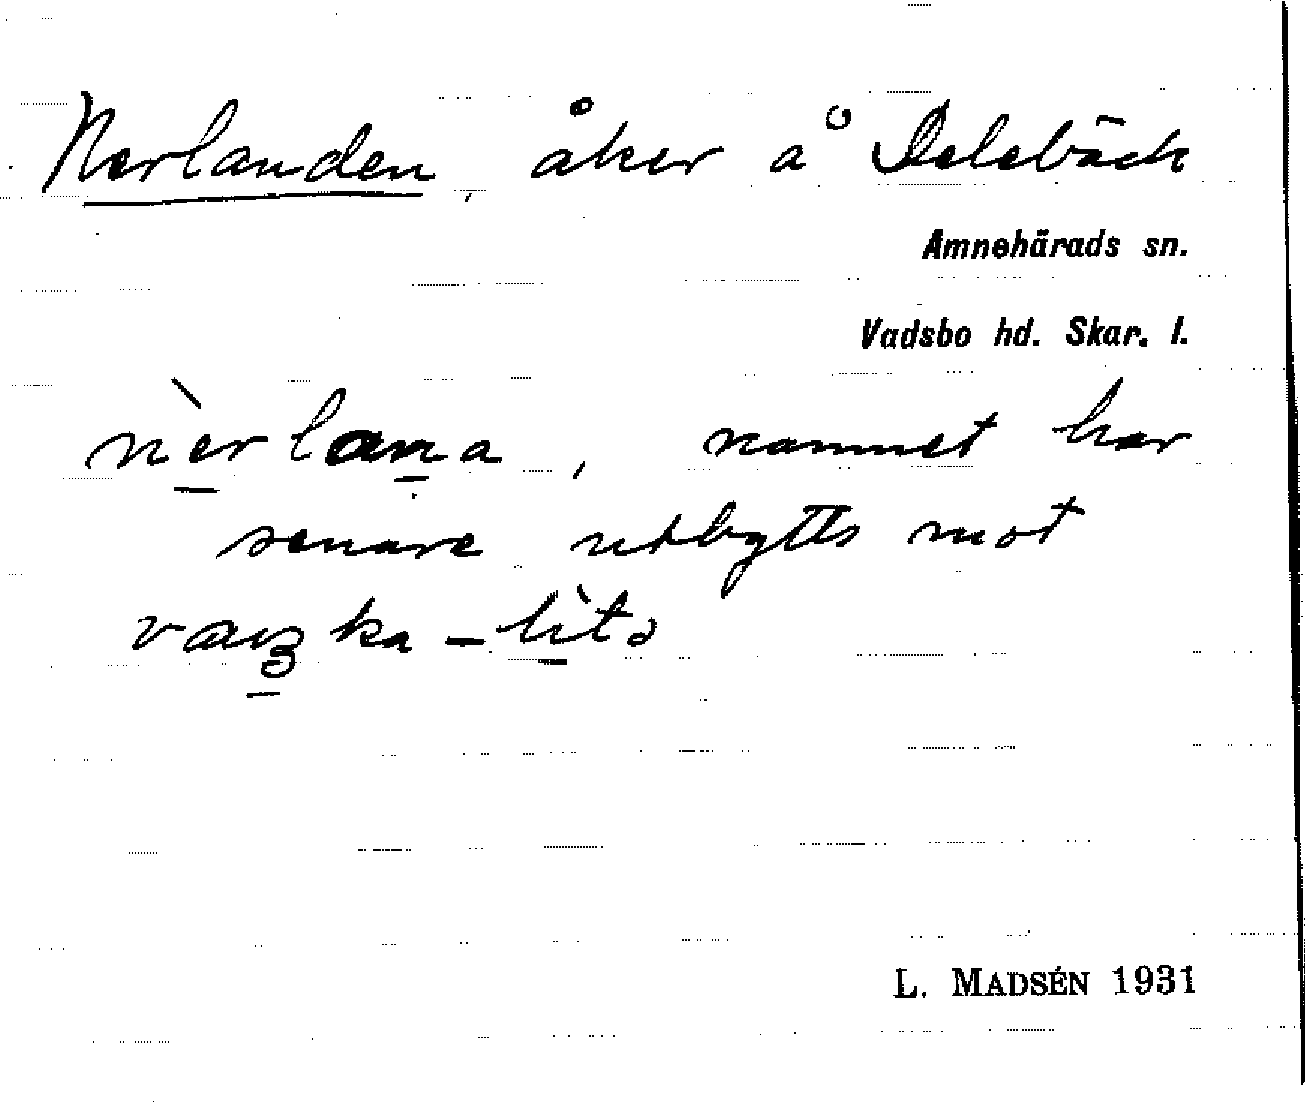 Nerlanden åker å Delebäck
Amnehärads sn.
Vadsbo hd. Skar. l.
nèrlana, namnet har
senare utbytts mot
L. MADSÉN 1931